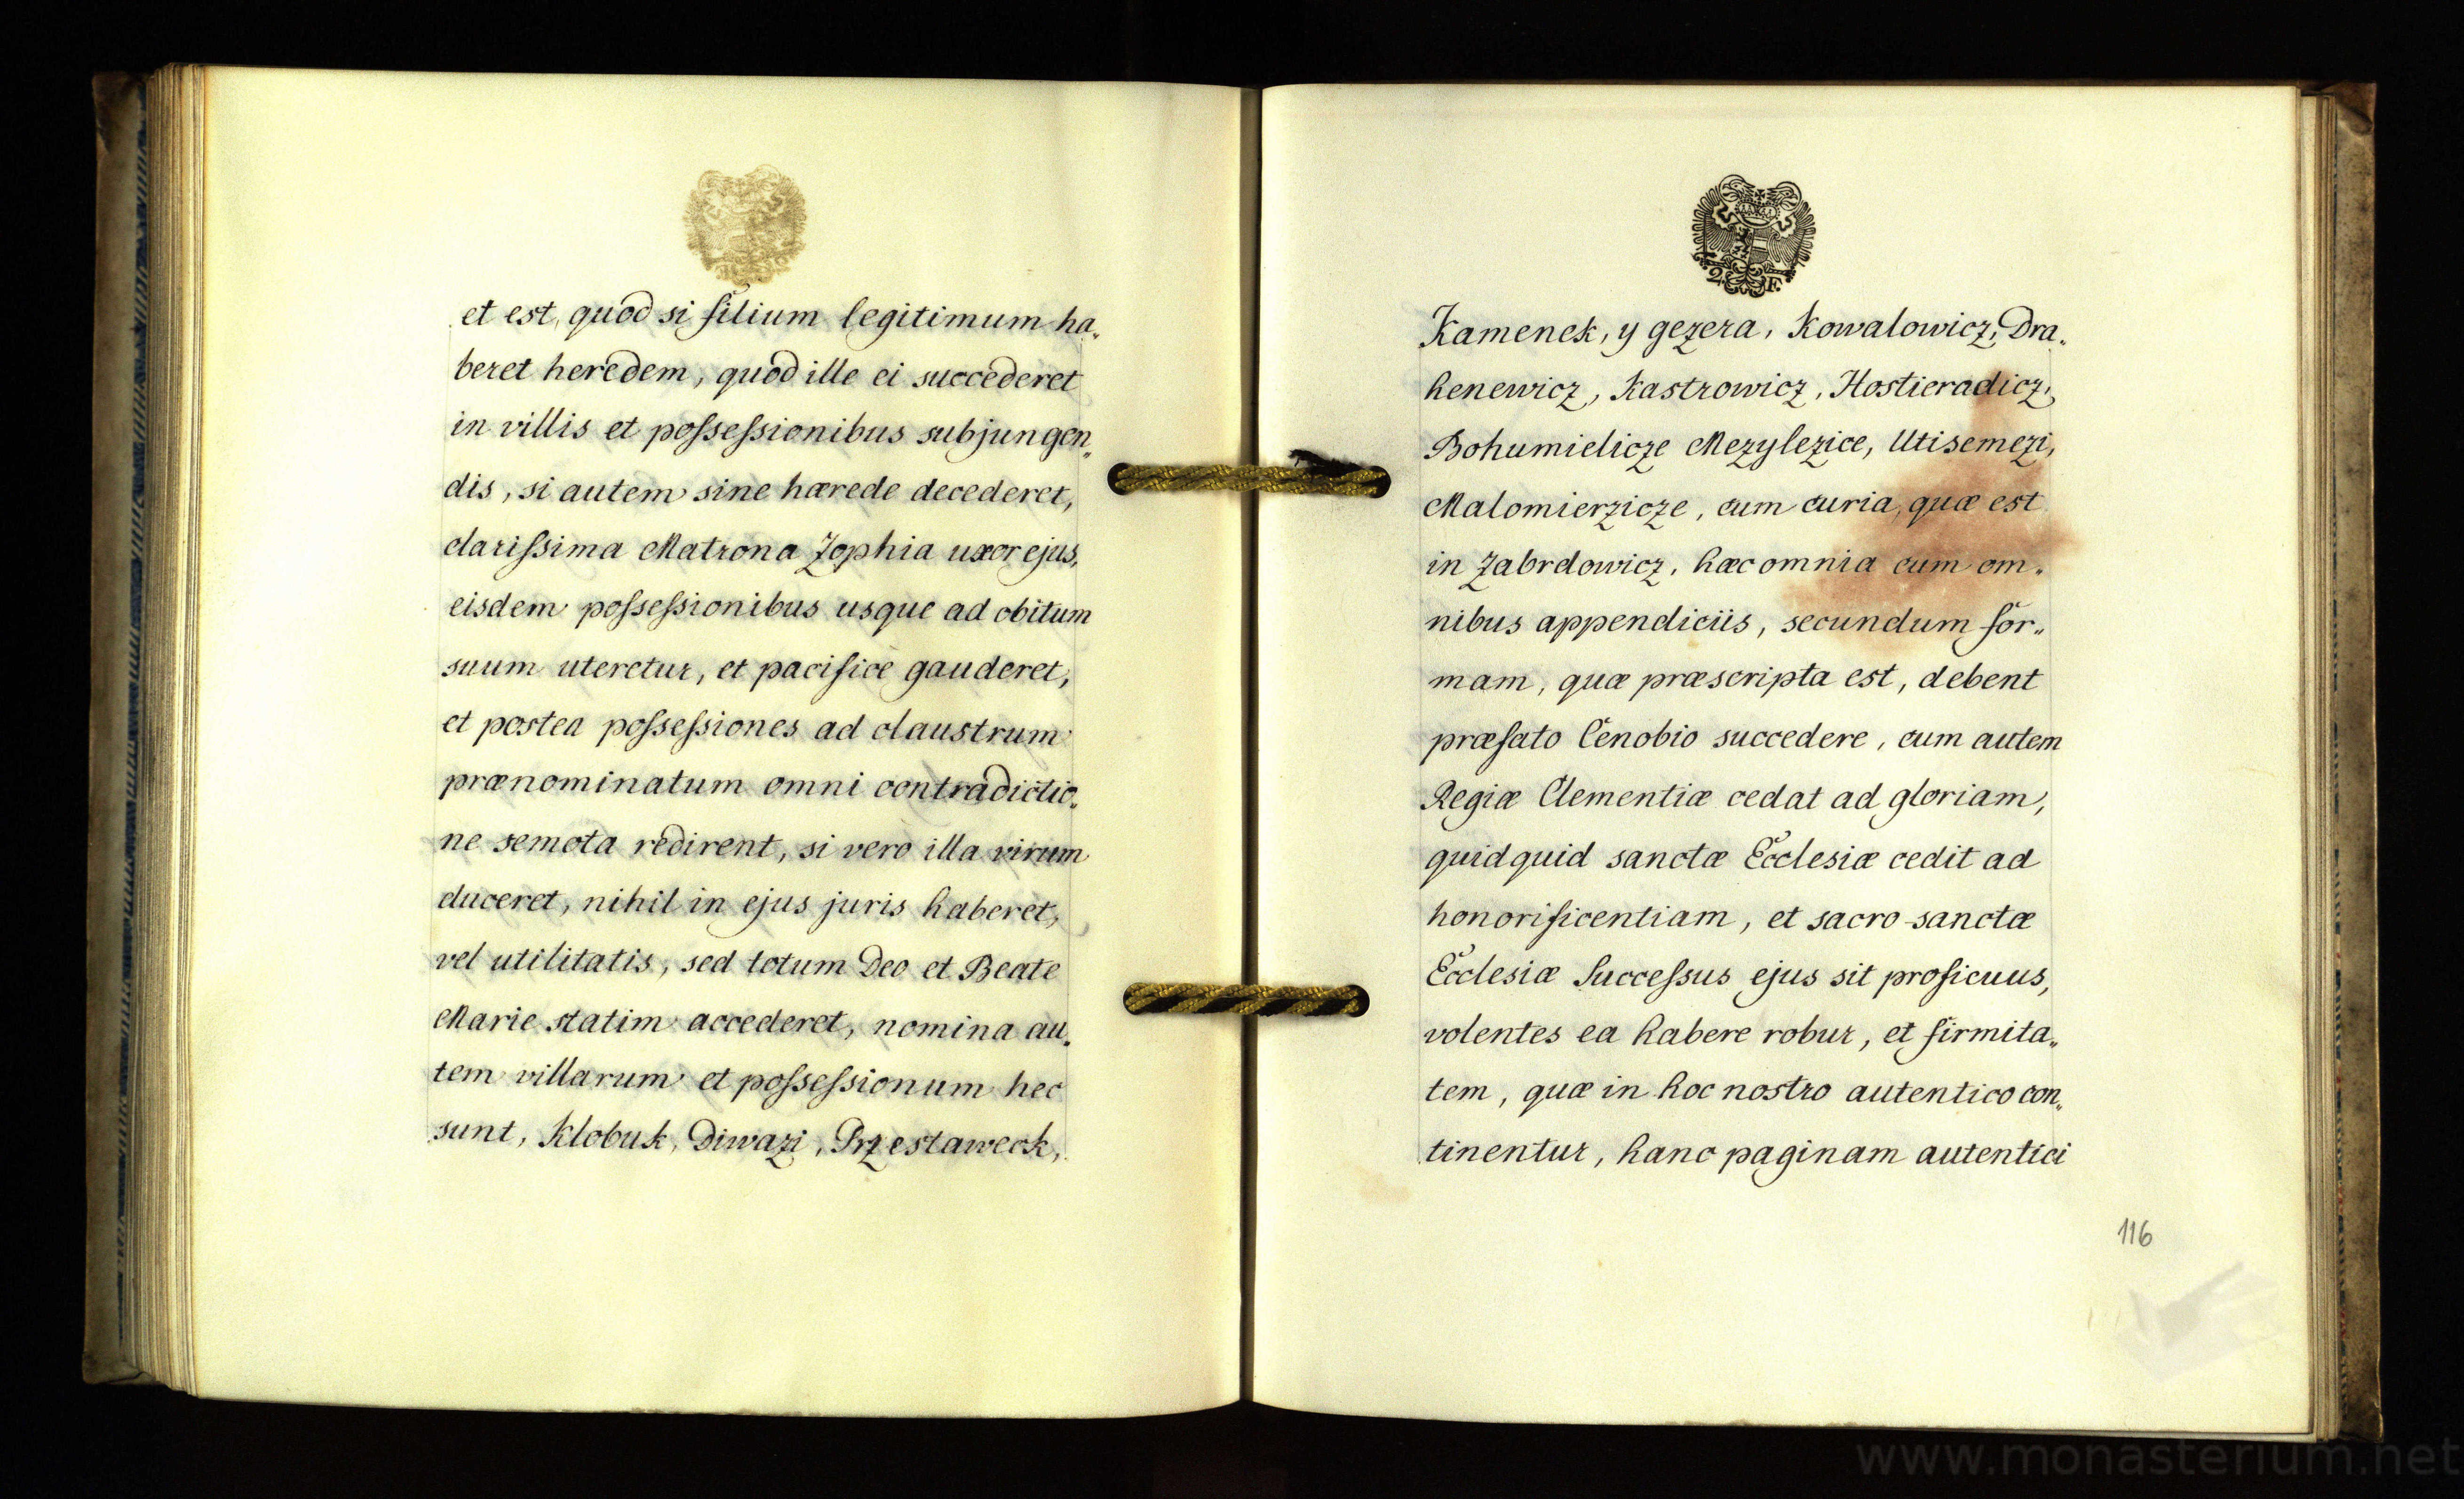 et est, quod si filium legitimum ha„
beret heredem, quod ille ei succederet
in villis et possessionibus subjungen„
dis, si autem sine hærede decederet,
clarissima Matrona Zophia uxor ejus,
eisdem possessionibus usque ad obitum
suum uteretur, et pacifice gauderet,
et postea possessiones ad claustrum
prænominatum omni contradictio„
ne semota redirent, si vero illa virum
duceret, nihil in ejus juris haberet,
vel utilitatis, sed totum Deo et Beate
Marie statim accederet, nomina au„
tem villarum et possessionum hec
sunt, Klobuk, Diwazi, Przestaweck,
2. F.
Kamenek, y gezera, Kowalowicz, Dra„
henewicz, Kastrowicz, Hostieradicz,
Bohumielicze Mezylezice, Utisemezi,
Malomierzicze, cum curia, quæ est
in Zabrdowicz, hæc omnia cum om„
nibus appendiciis, secundum for„
mam, quæ præscripta est, debent
præfato Cenobio succedere, cum autem
Regiæ Clementiæ cedat ad gloriam,
quidquid sanctæ Ecclesiæ cedit ad
honorificentiam, et sacro-sanctæ
Ecclesiæ Successus ejus sit proficuus,
volentes ea habere robur, et firmita„
tem, quæ in hoc nostro autentico con„
tinentur, hanc paginam autentici
116
www.monasterium.net